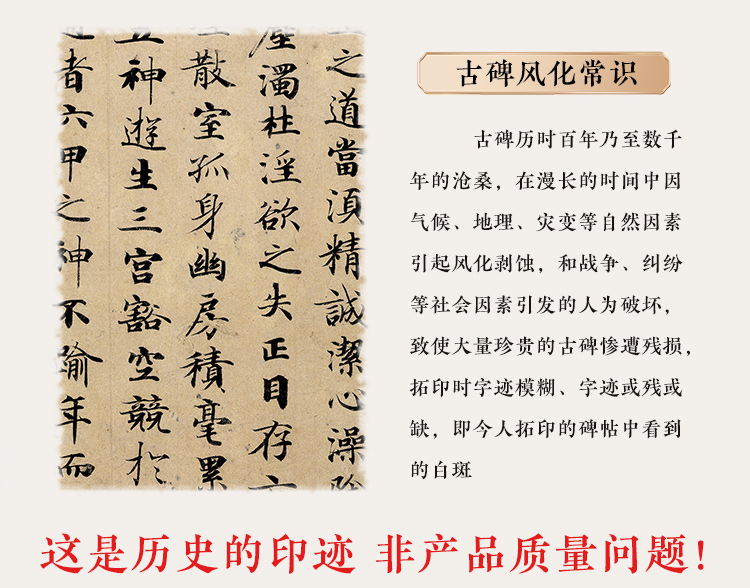 之道當湏精誠潔心澡
塵濁杜淫欲之失正目存
散室孤身幽房積毫累
五神遊生三宮豁空競於
者六甲之神不踰年而
古碑风化常识
古碑历时百年乃至数千
年的沧桑，在漫长的时间中因
气候、地理、灾变等自然因素
引起风化剥蚀，和战争、纠纷
等社会因素引发的人为破坏，
致使大量珍贵的古碑惨遭残损，
拓印时字迹模糊、字迹或残或
缺，即今人拓印的碑帖中看到
的白斑
这是历史的印迹 非产品质量问题！